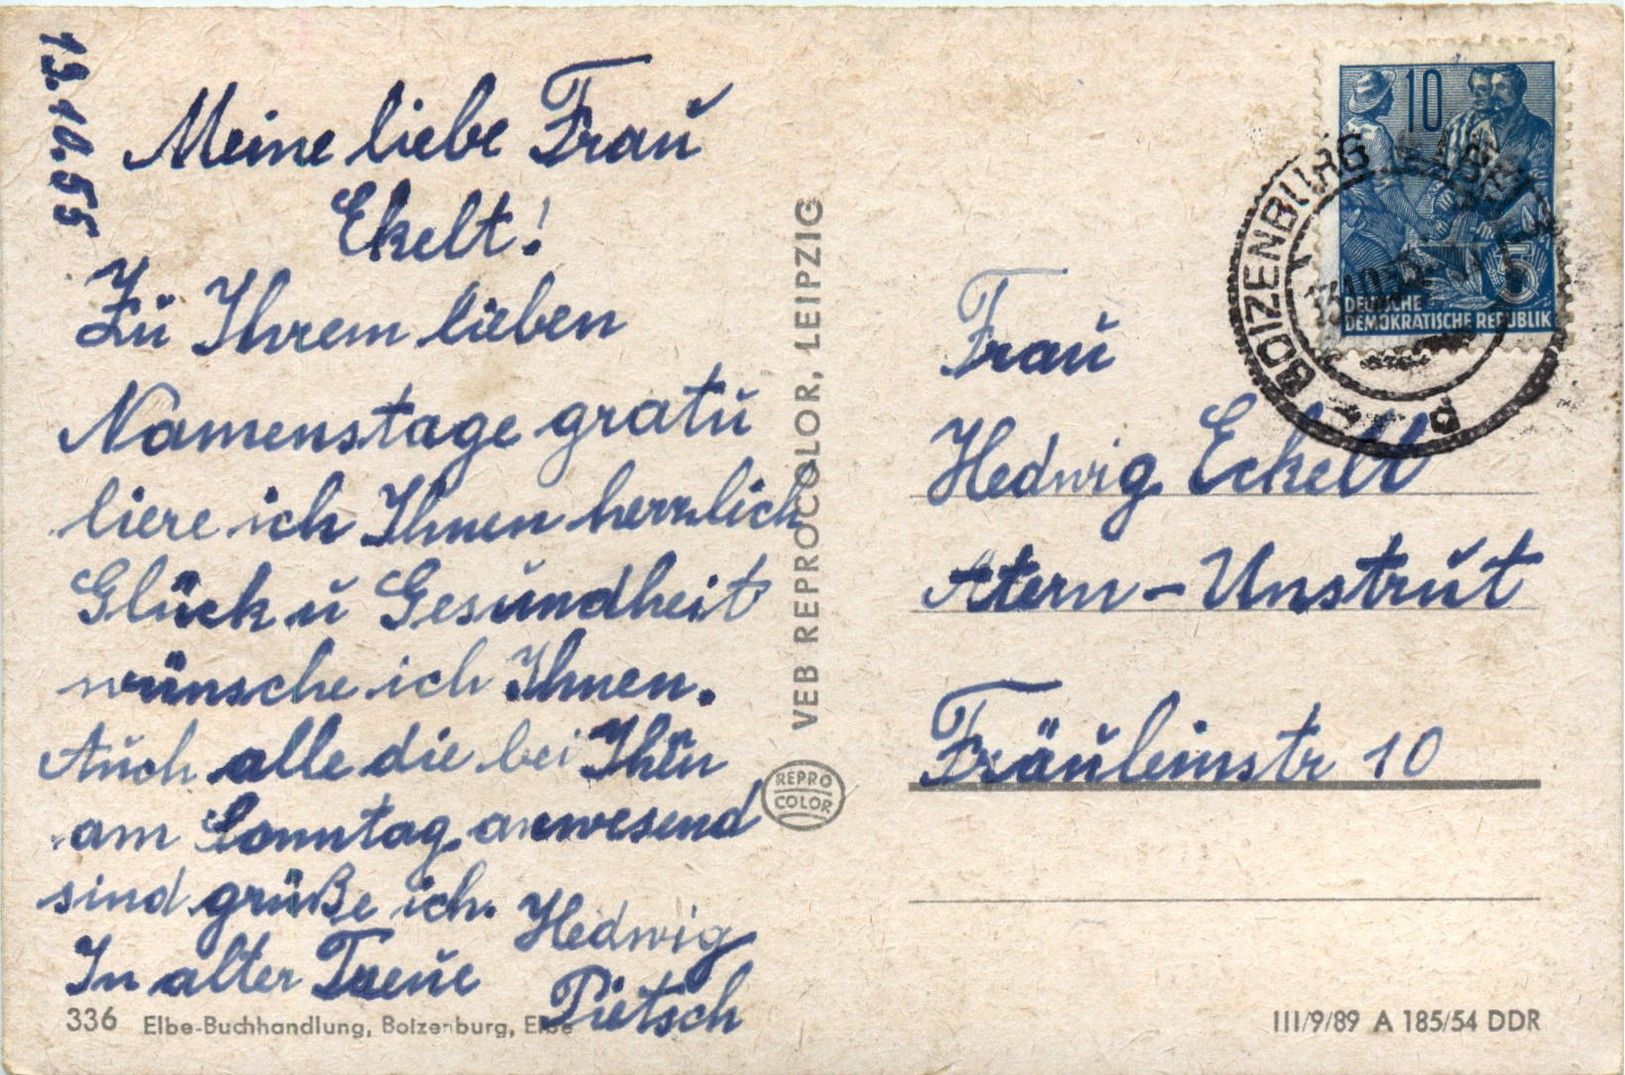 13.10.55
Meine liebe Frau
Ekelt!
Zu Ihrem lieben
Namenstage gratu
liere ich Ihnen herzlich
Glück u Gesundheit
wünsche ich Ihnen.
Auch alle die bei Ihn
am Sonntag anwesend
sind grüße ich. Hedwig
In alter Treue Pietsch
336 Elbe-Buchhandlung, Boizenburg, Elbe
VEB REPROCOLOR, LEIPZIG
REPRO
COLOR
10
5
DEUTSCHE
DEMOKRATISCHE REPUBLIK
BOIZENBURG
Frau
Hedwig Eckelt
Artern-Unstrut
Fräuleinstr 10
III/9/89 A 185/54 DDR